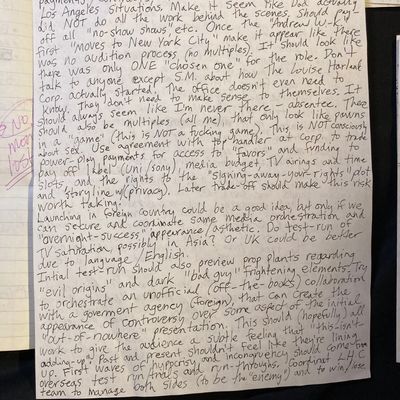 Los Angeles situations. Make it seem like Dad actually
did NOT do all the work behind the scenes. Should pay
off all "no-show shows" etc. Once the "Andrew W-K"
first "moves to New York City" make it appear like there
was no audition process (no multiples). It should look like
there was only ONE "chosen one" for the role. Don't
talk to anyone except S.M. about how The Louise Harland
Corp. actually started. The office doesn't even need to
know. They don't need to make sense to themselves. It
should always seem like I'm never there - absentee. There
should also be multiples (all me) that only look like pawns
in a "game" (this is NOT a fucking game). This is NOT consciously
about sex. Use agreement with top handler at Corp. to trade
power-play payments for access to "favors" and funding to
pay off label (Uni/Sony), media budget, TV airings and time
slots, and the rights to the "signing-away-your-rights" plot
and storyline w/(privacy). Later trade-off should make this risk
worth taking.
Launching in foreign country could be a good idea, but only if we
can secure and coordinate same media orchestration and
"overnight-success" appearance/asthetic. Do test-run of
TV saturation possibly in Asia? Or UK could be better
due to language/English.
Intial test-run should also preview prop plants regarding
"evil origins" and dark "bad guy" frightening elements. Try
to orchestrate an unofficial (off-the-books) collaboration
with a goverment agency (foreign), that can create the
appearance of controversy over some aspect of the initial
"out-of-nowhere" presentation. This should (hopefully) all
work to give the audience a subtle feeling that "this-isn't-
adding-up". Past and present shouldn't feel like they're lining
up. First waves of hypocrisy and incongruency should come from
overseas test run trials and run-throughs. Coordinat L.H.C.
team to manage both sides (to be "the enemy") and to win/lose.
NO
more